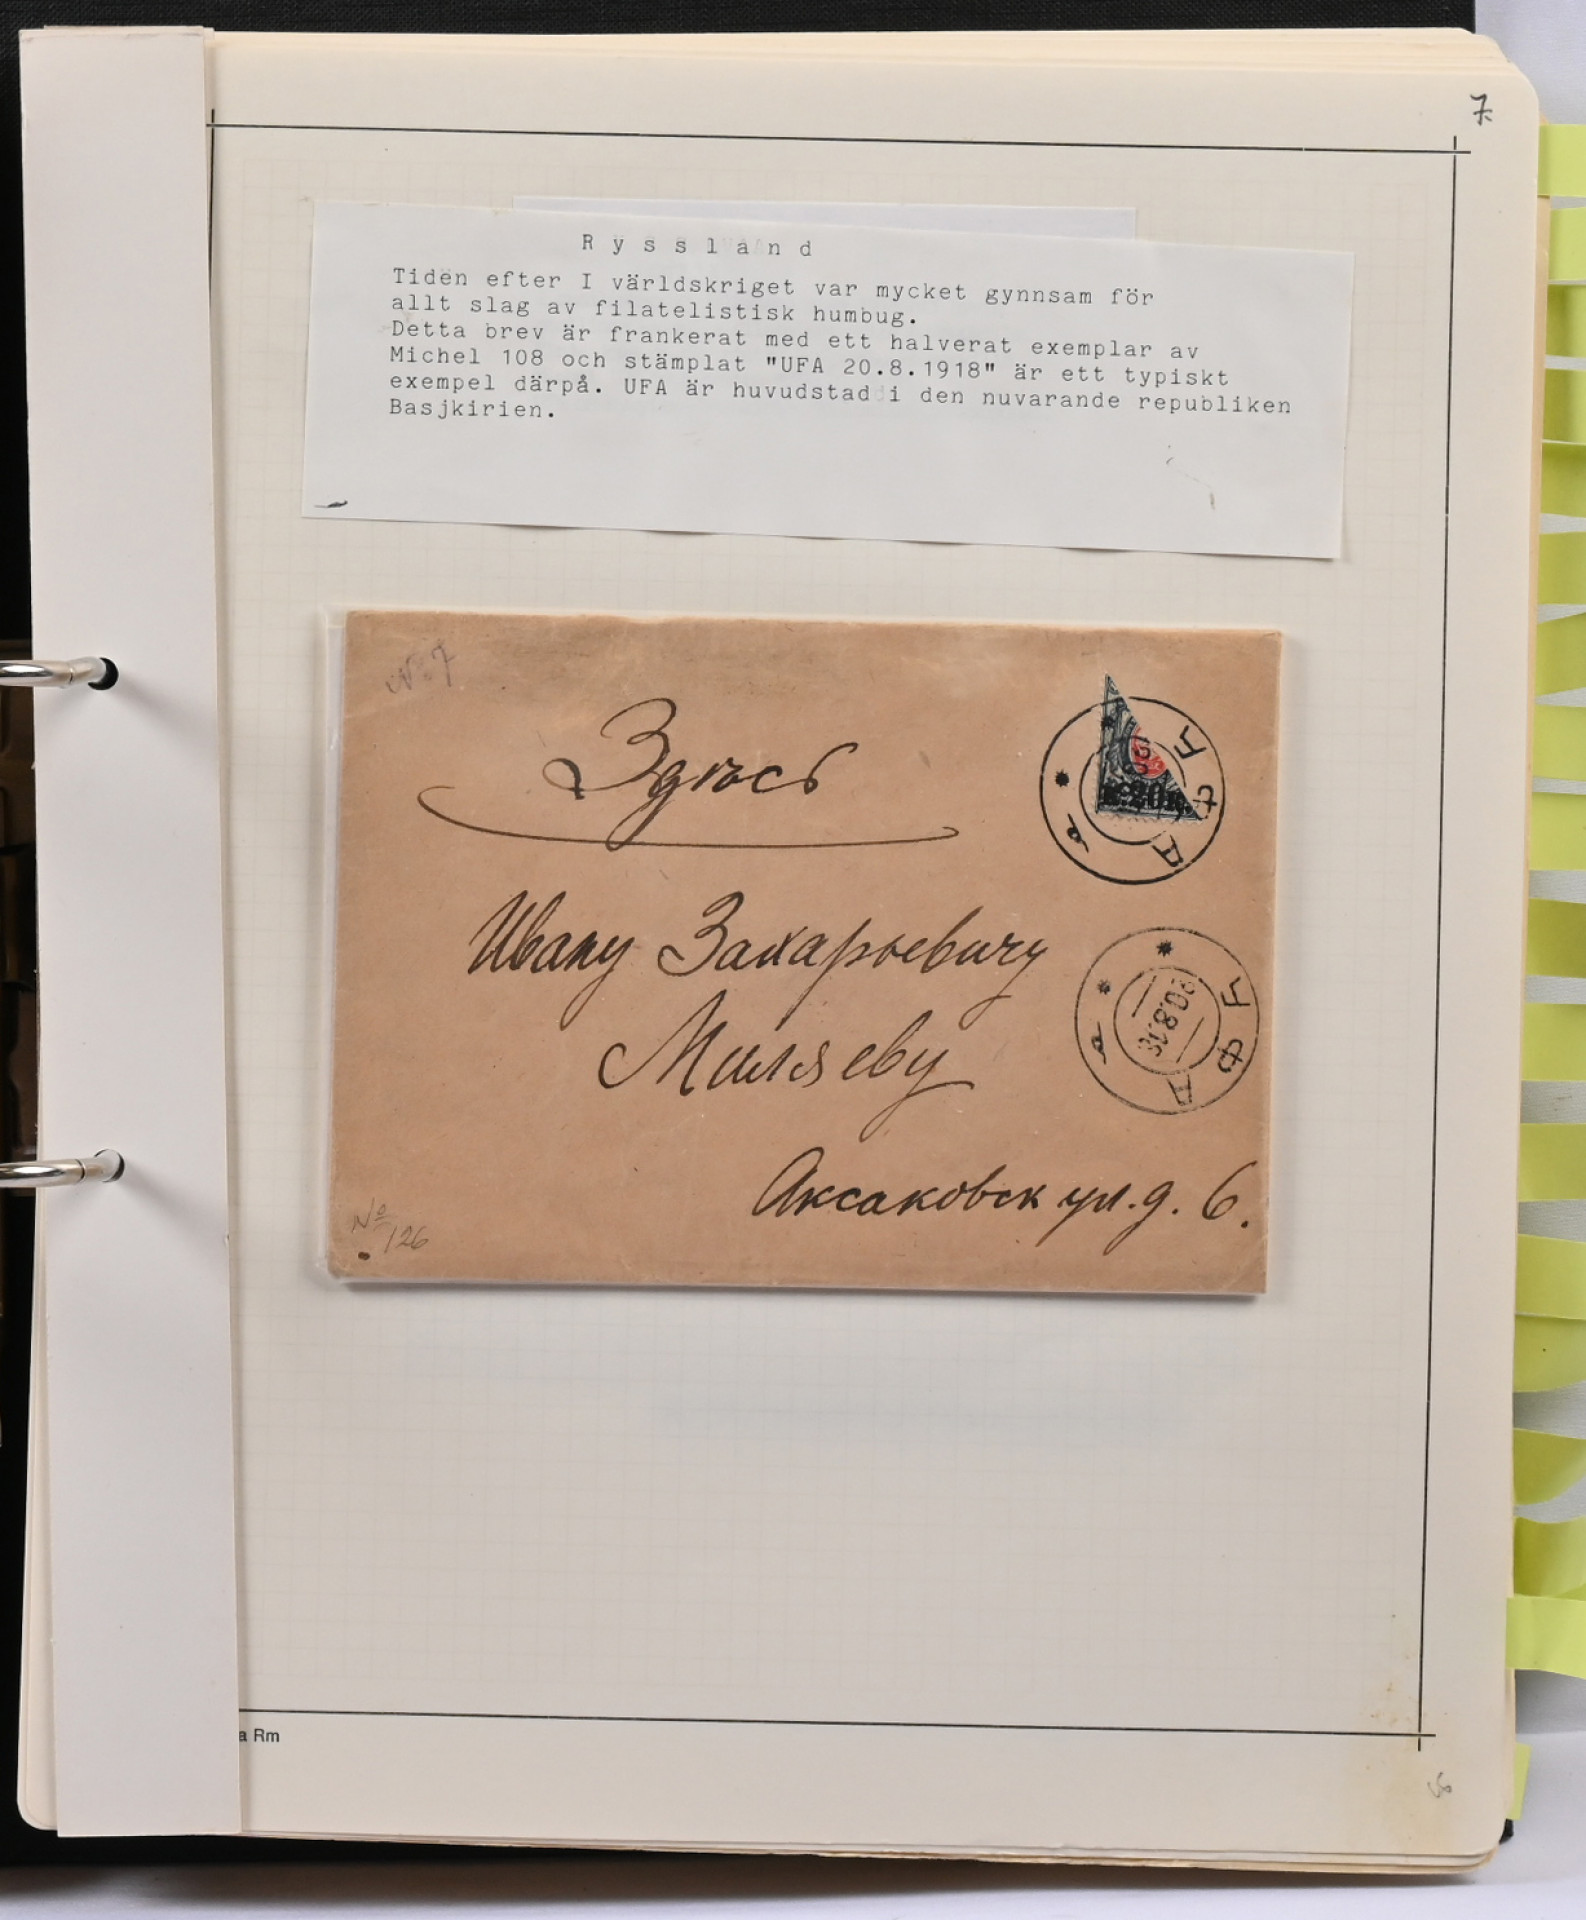 7.
Ryssland
Tiden efter I världskriget var mycket gynnsam för
allt slag av filatelistisk humbug.
Detta brev är frankerat med ett halverat exemplar av
Michel 108 och stämplat "UFA 20.8.1918" är ett typiskt
exempel därpå. UFA är huvudstad i den nuvarande republiken
Basjkirien.
№ 7
Здѣсь
к.20к.
УФА
а
Ивану Захарьевичу
УФА
20.8.18
а
Миляеву
Аксаковск ул. д. 6.
№ 126
a Rm